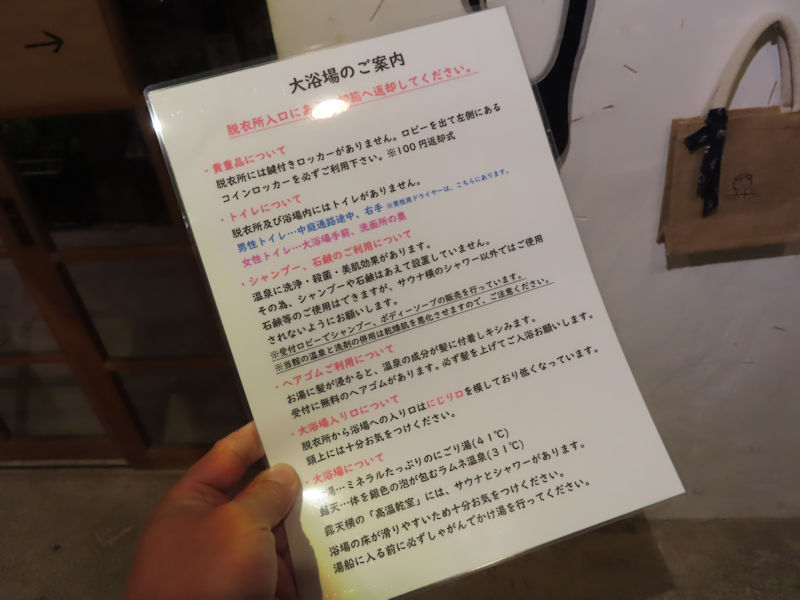 大浴場のご案内
脱衣所入口にあ 却箱へ返却してください。
・貴重品について
脱衣所には鍵付きロッカーがありません。ロビーを出て左側にある
コインロッカーを必ずご利用下さい。※100円返却式
・トイレについて
脱衣所及び浴場内にはトイレがありません。
男性トイレ…中庭通路途中、右手 ※男性用ドライヤーは、こちらにあります。
女性トイレ…大浴場手前、洗面所の奥
・シャンプー、石鹸のご利用について
温泉に洗浄・殺菌・美肌効果があります。
その為、シャンプーや石鹸はあえて設置していません。
石鹸等のご使用はできますが、サウナ横のシャワー以外ではご使用
されないようにお願いします。
※受付ロビーでシャンプー、ボディーソープの販売を行っています。
※当館の温泉と洗剤の併用は乾燥肌を悪化させますので、ご注意ください。
・ヘアゴムご利用について
お湯に髪が浸かると、温泉の成分が髪に付着しキシみます。
受付に無料のヘアゴムがあります。必ず髪を上げてご入浴お願いします。
・大浴場入り口について
脱衣所から浴場への入り口はにじり口を模しており低くなっています。
頭上には十分お気をつけください。
・大浴場について
湯…ミネラルたっぷりのにごり湯(41℃)
露天…体を銀色の泡が包むラムネ温泉(31℃)
露天横の「高温乾室」には、サウナとシャワーがあります。
浴場の床が滑りやすいため十分お気をつけください。
湯船に入る前に必ずしゃがんでかけ湯を行ってください。